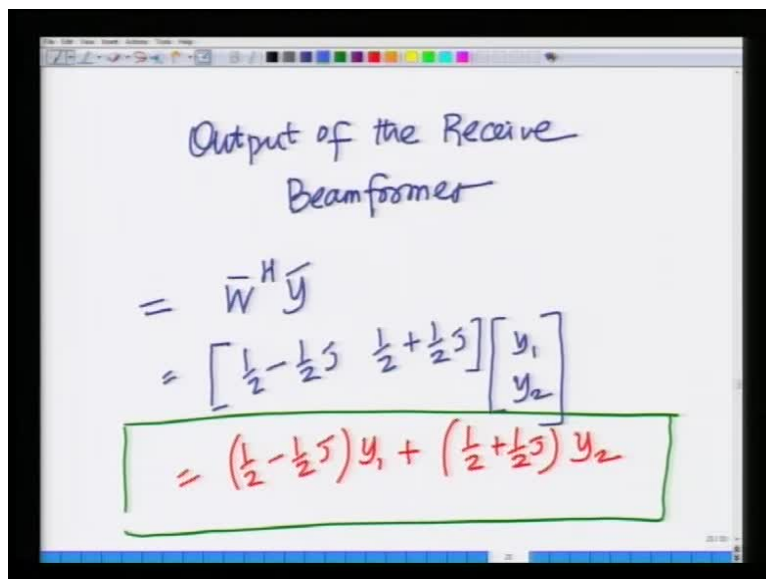 Output of the Receive
Beamformer
= w̄ᴴ ȳ
= [ 1/2 - 1/2 j   1/2 + 1/2 j ] [ y₁ y₂ ]
= (1/2 - 1/2 j) y₁ + (1/2 + 1/2 j) y₂